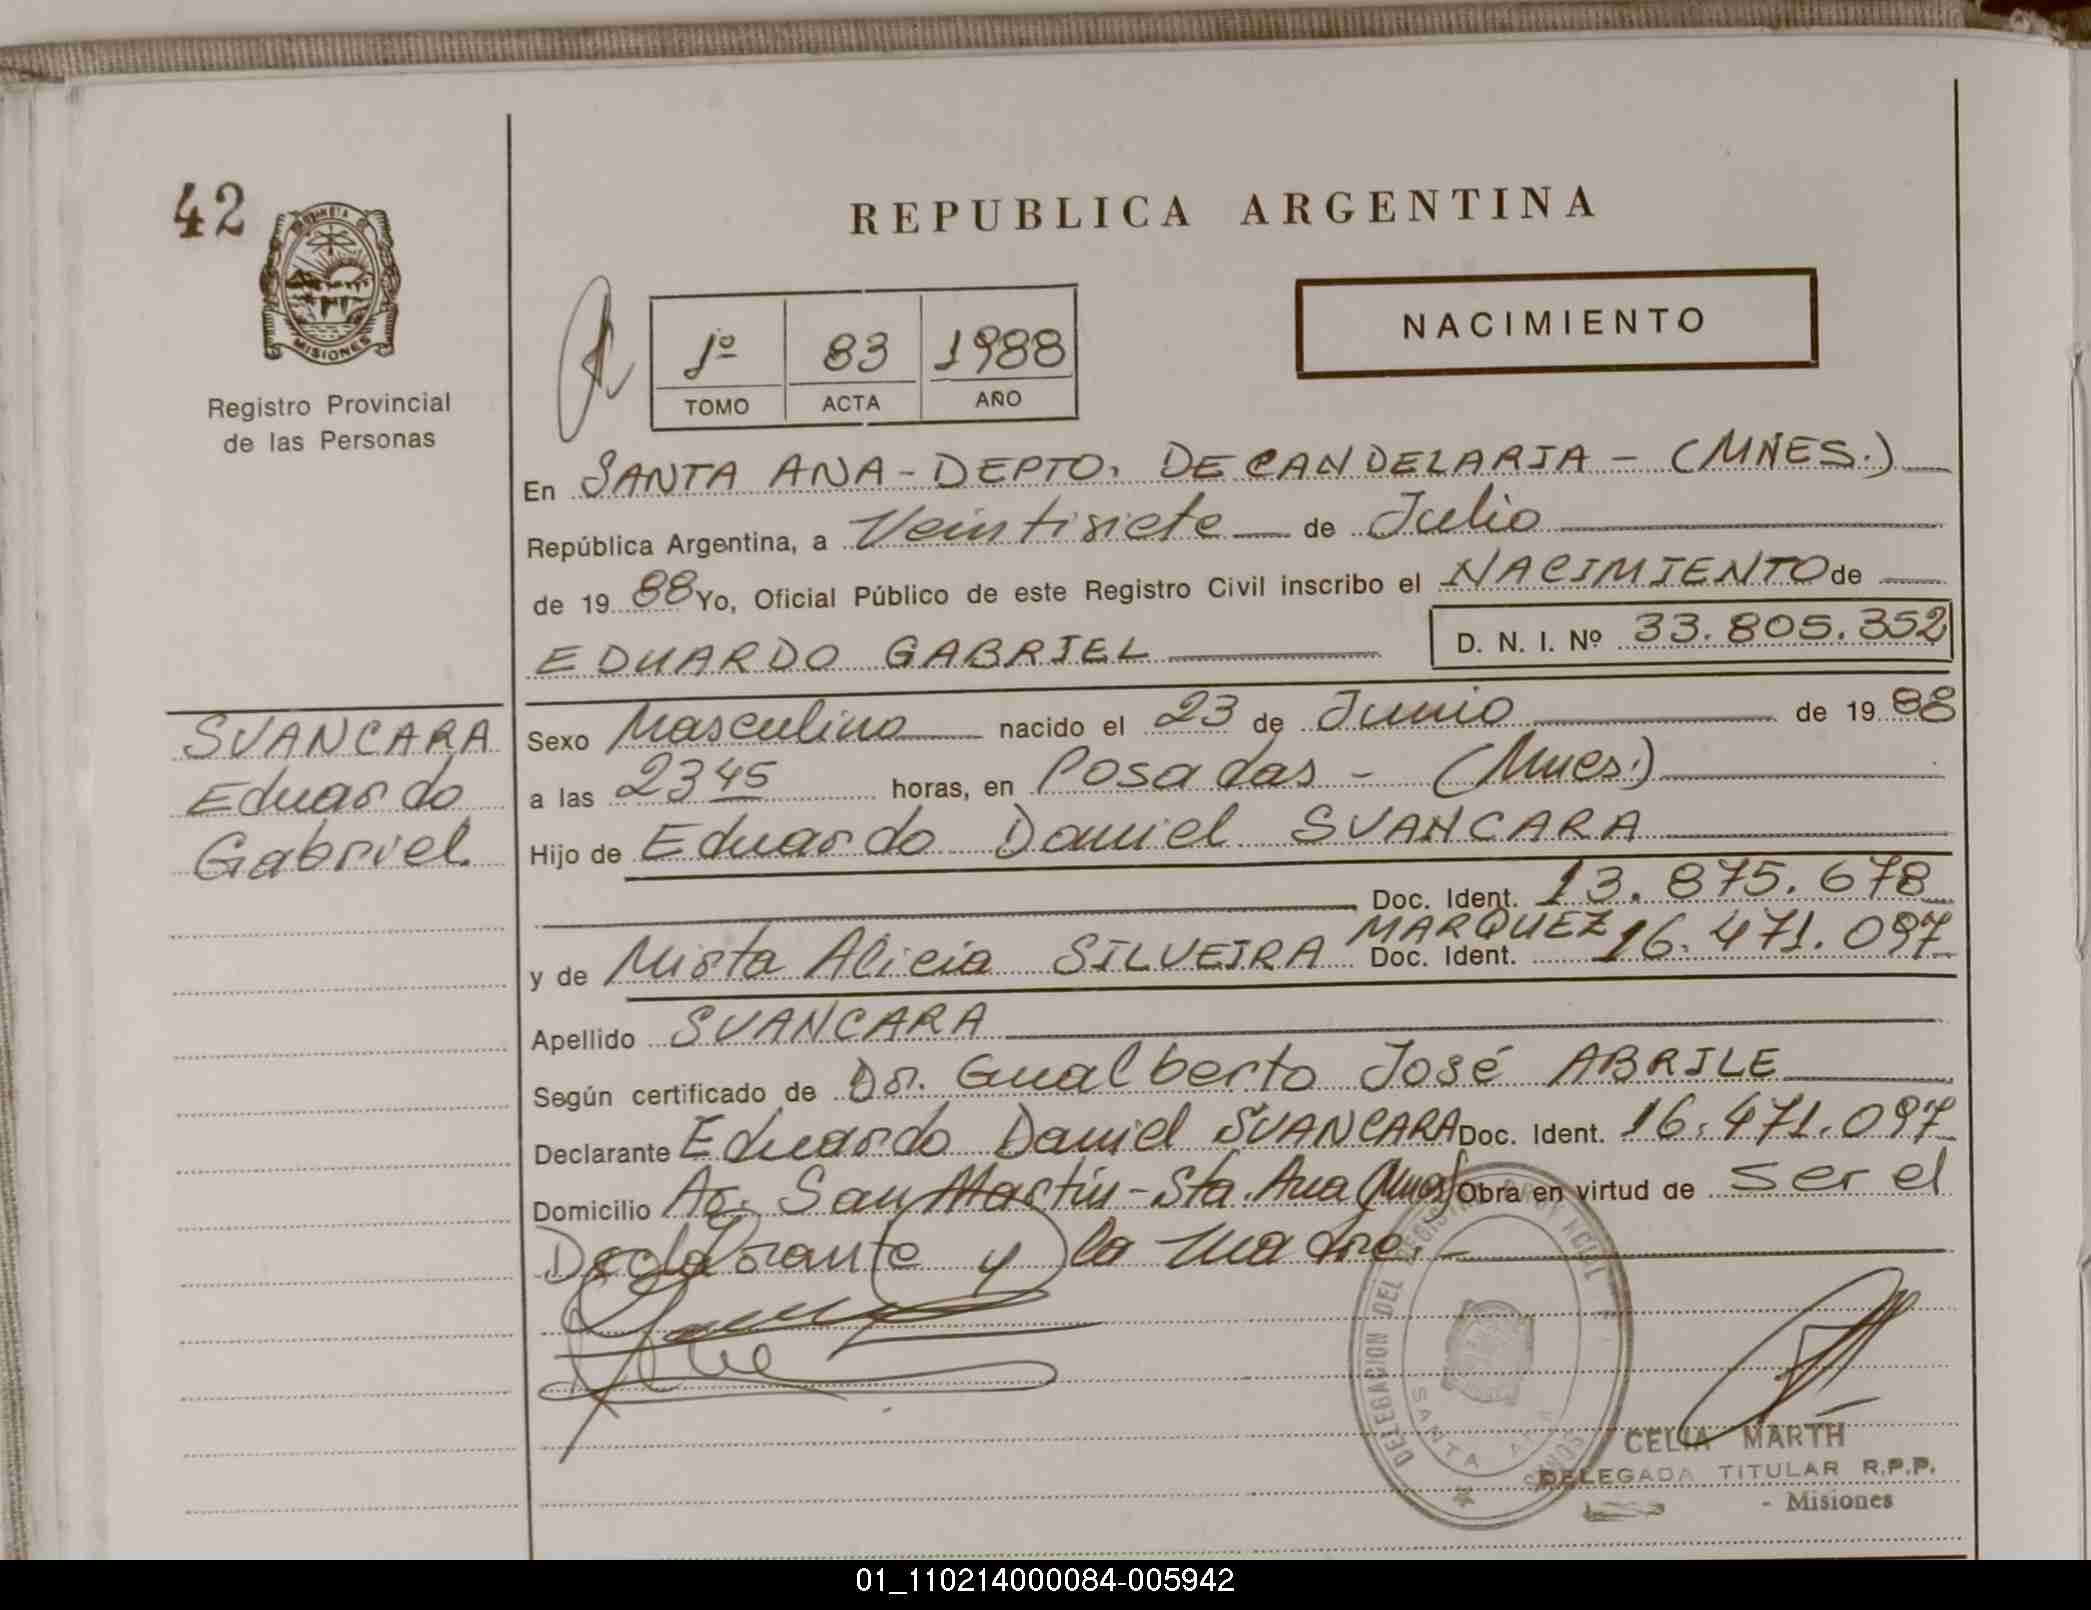 42
MISIONES
Registro Provincial
de las Personas
REPUBLICA ARGENTINA
1º 83 1988
TOMO ACTA AÑO
NACIMIENTO
En SANTA ANA - DEPTO. DE CANDELARIA - (MNES.)
República Argentina, a Veintisiete de Julio
de 19 88 Yo, Oficial Público de este Registro Civil inscribo el NACIMIENTO de
EDUARDO GABRIEL D. N. I. Nº 33.805.352
SVANCARA
Eduardo
Gabriel
Sexo Masculino nacido el 23 de Junio de 19 88
a las 23 45 horas, en Posadas - (Mnes.)
Hijo de Eduardo Daniel SVANCARA
Doc. Ident. 13.875.678
y de Mirta Alicia SILVEIRA MARQUEZ Doc. Ident. 16.471.097
Apellido SVANCARA
Según certificado de Dr. Gualberto José ABRILE
Declarante Eduardo Daniel SVANCARA Doc. Ident. 16.471.097
Domicilio Av. San Martín - Sta. Ana (Mnes) Obra en virtud de ser el
Declarante y la madre.
DELEGACION DEL REGISTRO PROVINCIAL
SANTA ANA
CELIA MARTH
DELEGADA TITULAR R.P.P.
- Misiones
01_110214000084-005942